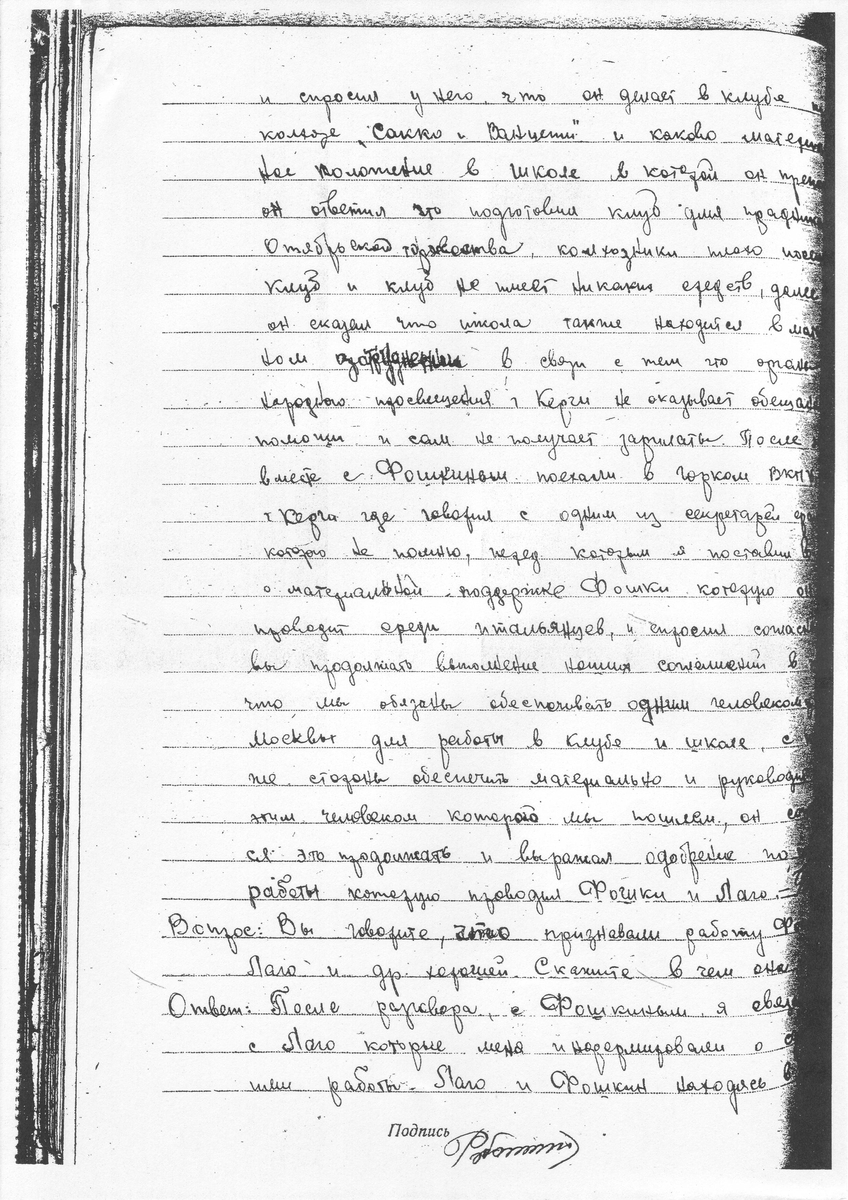 и спросил у него, что он делает в клубе
колхозе „Сакко и Ванцетти" и каково матери
ное положение в школе в которой он преп
он ответил что подготовил клуб для праздник
Октябрьской торжества, колхозники плохо посе
клуб и клуб не имеет никаких средств, далее
он сказал что школа также находится в мат
ном в связи с тем что орган
народного просвещения г Керчи не оказывает обещан
помощи и сам не получает зарплаты. После
вместе с Фошкиным поехали в горком ВКП
г Керчи где говорил с одним из секретарей
которого не помню, перед которым я поставил в
о материальной поддержке Фошки которую он
проводит среди итальянцев, и спросил соглас
вы продолжать выполнение наших соглашений в
что мы обязаны обеспечивать одним человеком
Москвы для работы в клубе и школе, с
же стороны обеспечить материально и руководи
этим человеком которого мы пошлем, он со
ся это продолжать и выражал одобрение по
работы которую проводил Фошки и Лаго.
Вопрос: Вы говорите, что признавали работу Фо
Лаго и др. хорошей. Скажите в чем она
Ответ: После разговора, с Фошкиным я связ
с Лаго которые меня информировали о
шей работы. Лаго и Фошкин находясь в
Подпись